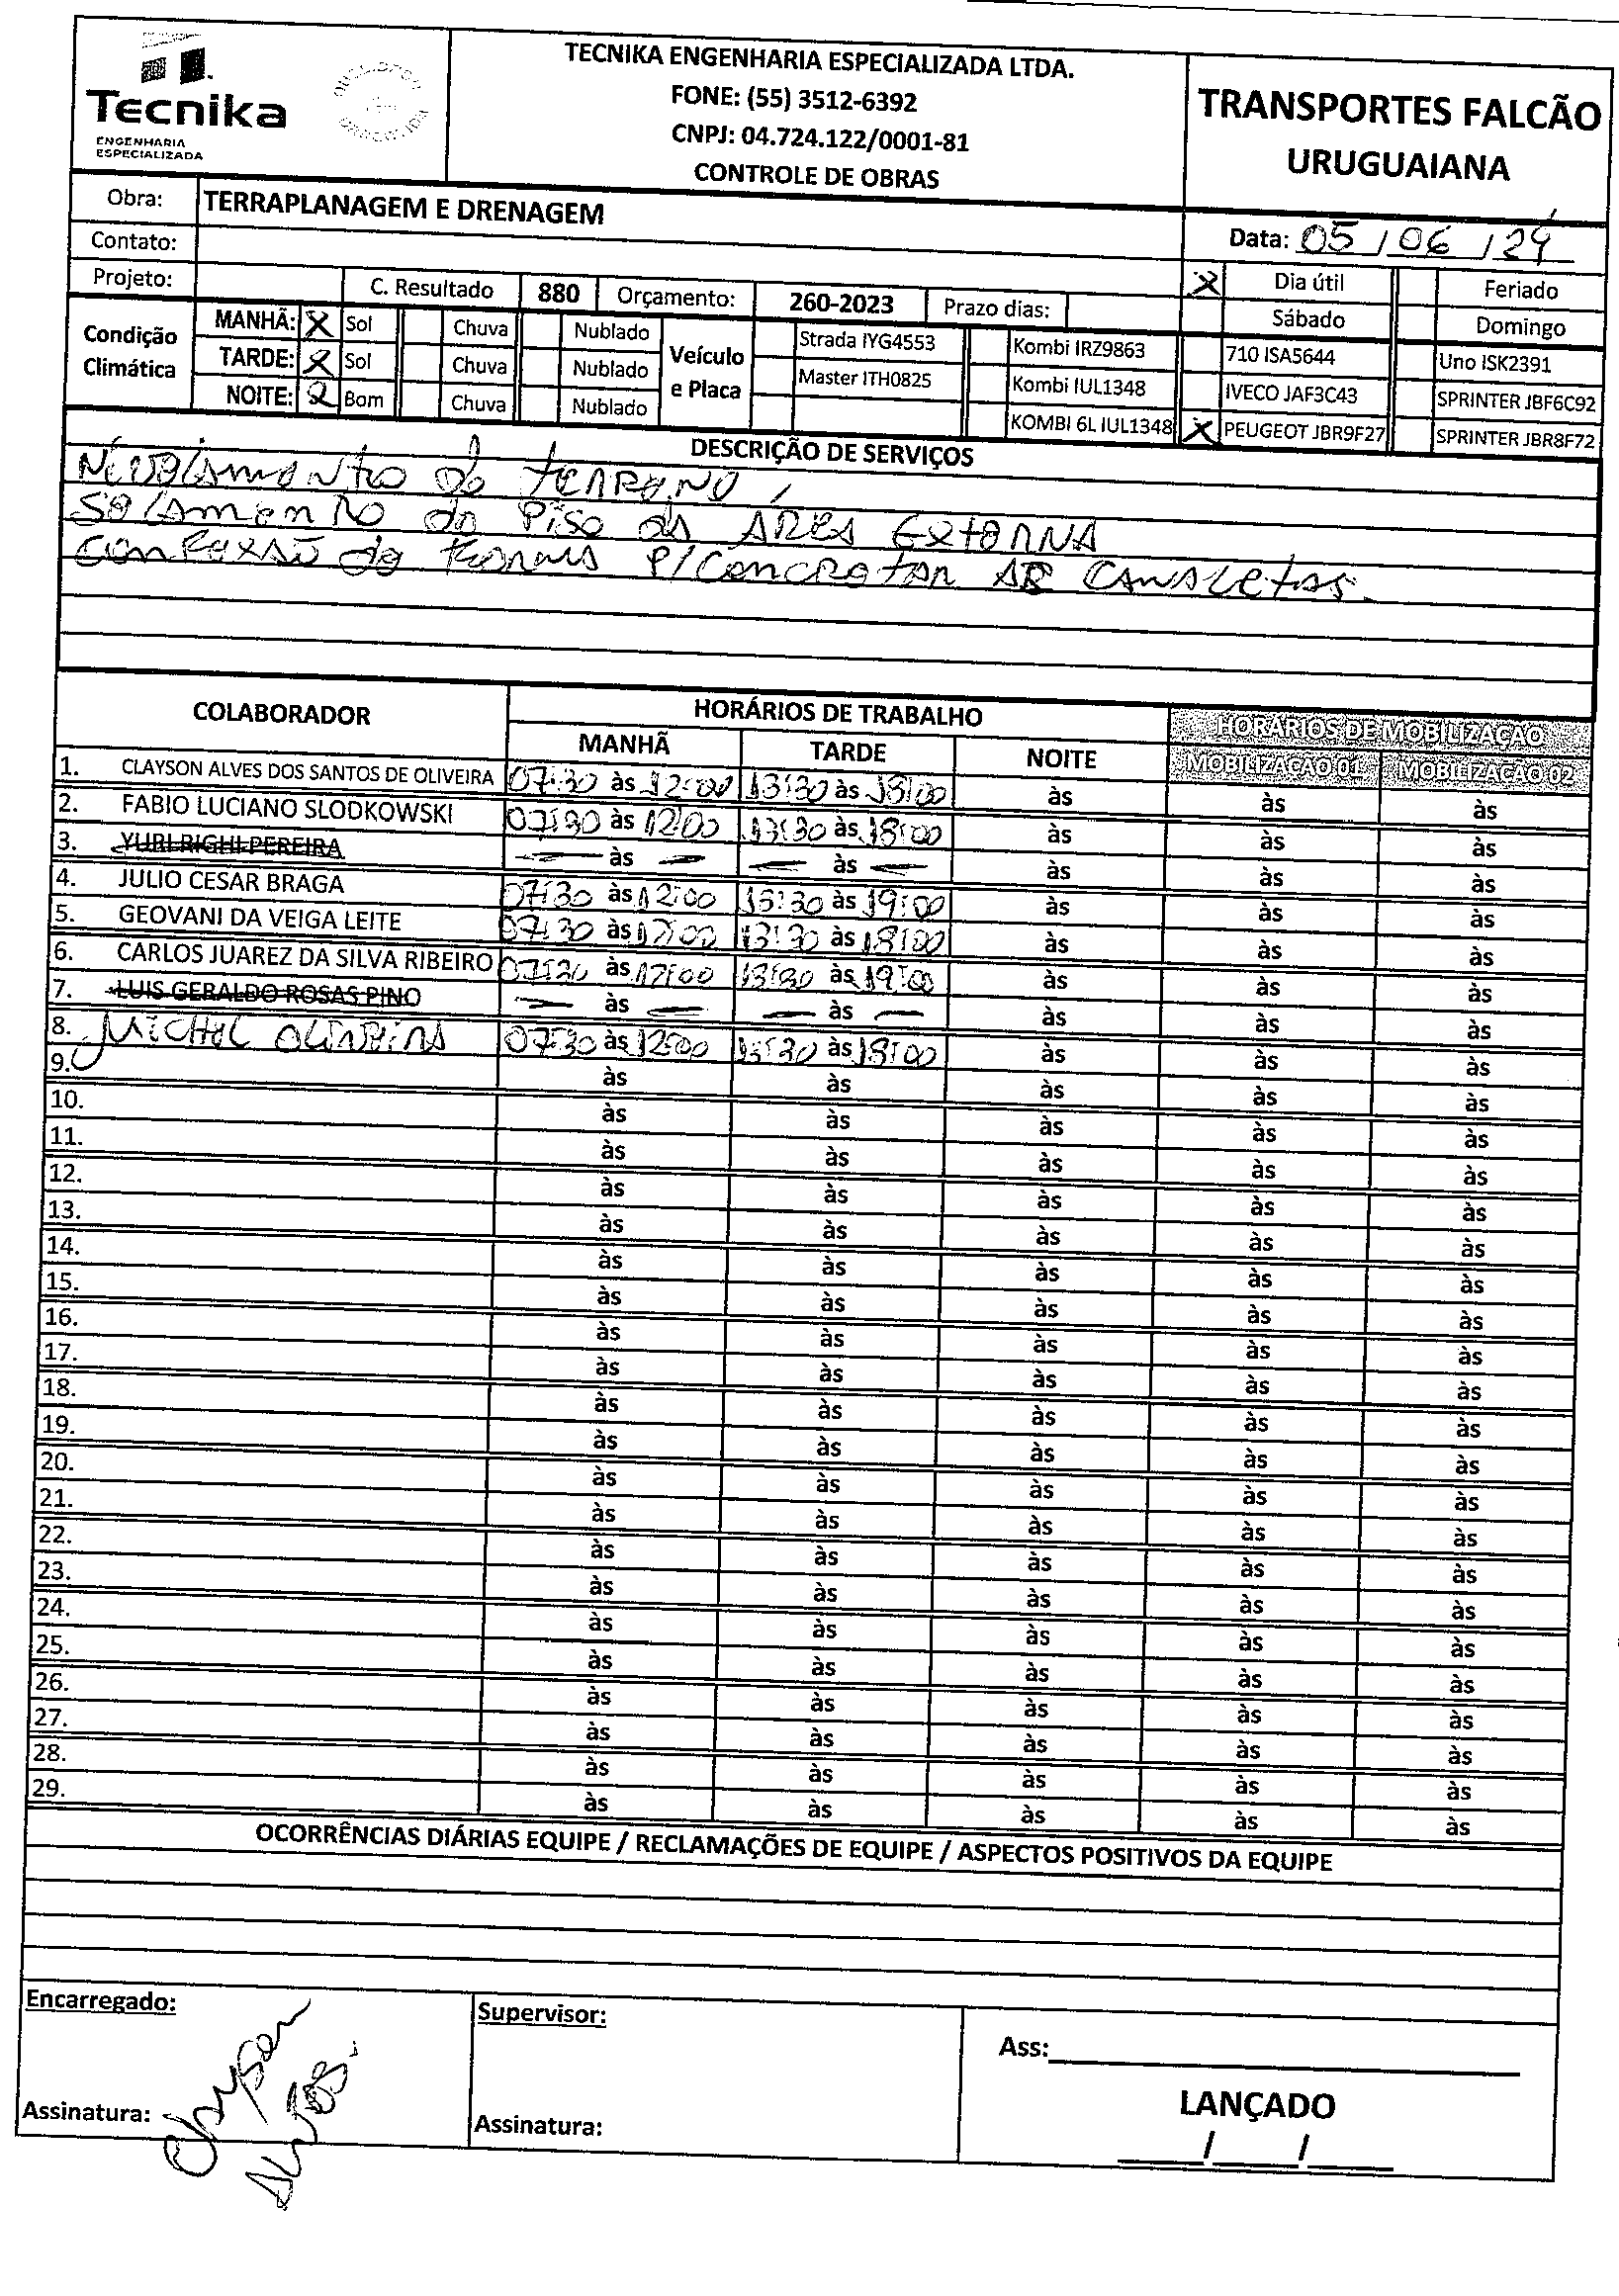 Tecnika
ENGENHARIA
ESPECIALIZADA
TECNIKA ENGENHARIA ESPECIALIZADA LTDA.
FONE: (55) 3512-6392
CNPJ: 04.724.122/0001-81
CONTROLE DE OBRAS
TRANSPORTES FALCÃO
URUGUAIANA
Obra: TERRAPLANAGEM E DRENAGEM
Data: 05/06/24
Contato:
Projeto: C. Resultado 880 Orçamento: 260-2023 Prazo dias:
X Dia útil Feriado
Sábado Domingo
Condição Climática
MANHÃ: X Sol Chuva Nublado
TARDE: X Sol Chuva Nublado
NOITE: X Bom Chuva Nublado
Veículo e Placa
Strada IYG4553 Kombi IRZ9863 710 ISA5644 Uno ISK2391
Master ITH0825 Kombi IUL1348 IVECO JAF3C43 SPRINTER JBF6C92
KOMBI 6L IUL1348 X PEUGEOT JBR9F27 SPRINTER JBR8F72
DESCRIÇÃO DE SERVIÇOS
do terreno,
do Piso da AREA EXTERNA
do formas P/Concretar AS CANALETAS.
COLABORADOR HORÁRIOS DE TRABALHO HORÁRIOS DE MOBILIZAÇÃO
MANHÃ TARDE NOITE MOBILIZAÇÃO 01 MOBILIZAÇÃO 02
1. CLAYSON ALVES DOS SANTOS DE OLIVEIRA 07:30 às 12:00 13:30 às 18:00 às às às
2. FABIO LUCIANO SLODKOWSKI 07:30 às 12:00 13:30 às 18:00 às às às
3. YURI RIGHI PEREIRA — às — — às — às às às
4. JULIO CESAR BRAGA 07:30 às 12:00 13:30 às 19:00 às às às
5. GEOVANI DA VEIGA LEITE 07:30 às 12:00 13:30 às 18:00 às às às
6. CARLOS JUAREZ DA SILVA RIBEIRO 07:30 às 12:00 13:30 às 19:00 às às às
7. LUIS GERALDO ROSAS PINO — às — — às — às às às
8. MICHEL OLIVEIRA 07:30 às 12:00 13:30 às 18:00 às às às
9. às às às às às
10. às às às às às
11. às às às às às
12. às às às às às
13. às às às às às
14. às às às às às
15. às às às às às
16. às às às às às
17. às às às às às
18. às às às às às
19. às às às às às
20. às às às às às
21. às às às às às
22. às às às às às
23. às às às às às
24. às às às às às
25. às às às às às
26. às às às às às
27. às às às às às
28. às às às às às
29. às às às às às
OCORRÊNCIAS DIÁRIAS EQUIPE / RECLAMAÇÕES DE EQUIPE / ASPECTOS POSITIVOS DA EQUIPE
Encarregado:
Supervisor:
Ass:
Clayson
Alves.
LANÇADO
Assinatura:
Assinatura:
/ /